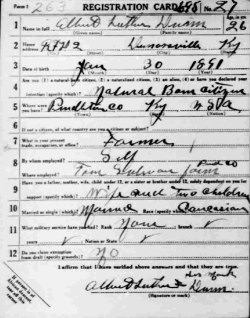 Form 1 263 REGISTRATION CARD No. 27
1 Name in full Albert Luther Dunn Age, in yrs. 26
2 Home address RFD 2 Ky
3 Date of birth Jan 30 1891
4 Are you (1) a natural-born citizen, (2) a naturalized citizen, (3) an alien, (4) or have you declared your intention (specify which)? Natural Born Citizen
5 Where were you born? Pendleton Co Ky USA
6 If not a citizen, of what country are you a citizen or subject?
7 What is your present trade, occupation, or office? Farmer
8 By whom employed? Self
Where employed?
9 Have you a father, mother, wife, child under 12, or a sister or brother under 12, solely dependent on you for support (specify which)? Wife and Two children
10 Married or single (which)? Married Race (specify which)? Caucasian
11 What military service have you had? Rank None branch
years Nation or State
12 Do you claim exemption from draft (specify grounds)? No
I affirm that I have verified above answers and that they are true.
Albert Luther Dunn
(Signature or mark)